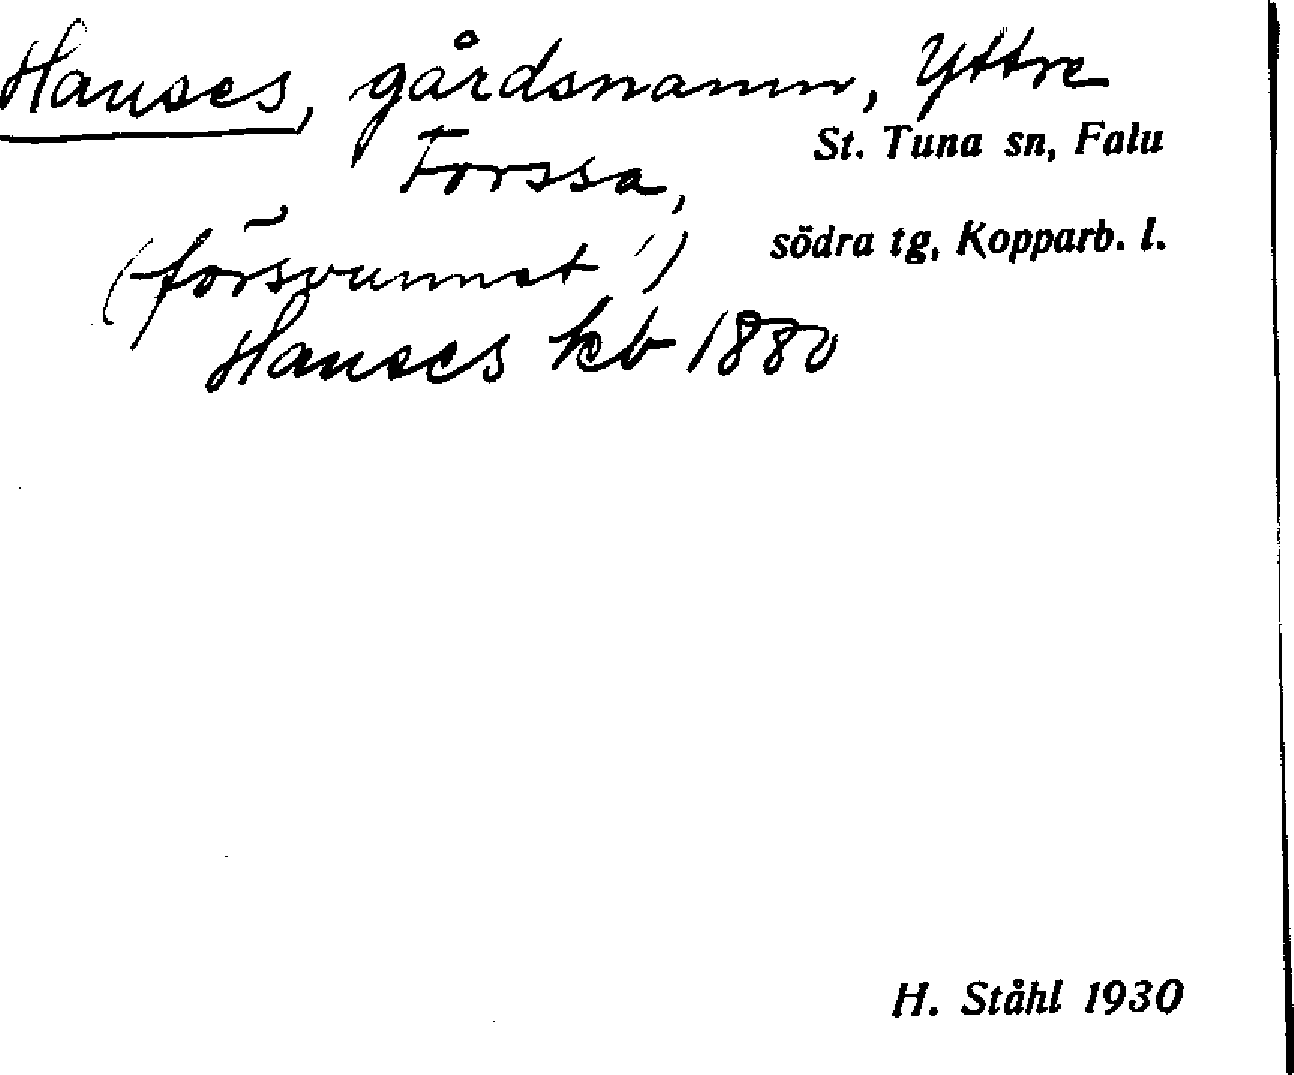 Hanses, gårdsnamn, Yttre
St. Tuna sn, Falu
Forssa,
södra tg, Kopparb. l.
(försvunnet)
Hanses kb 1880
H. Ståhl 1930